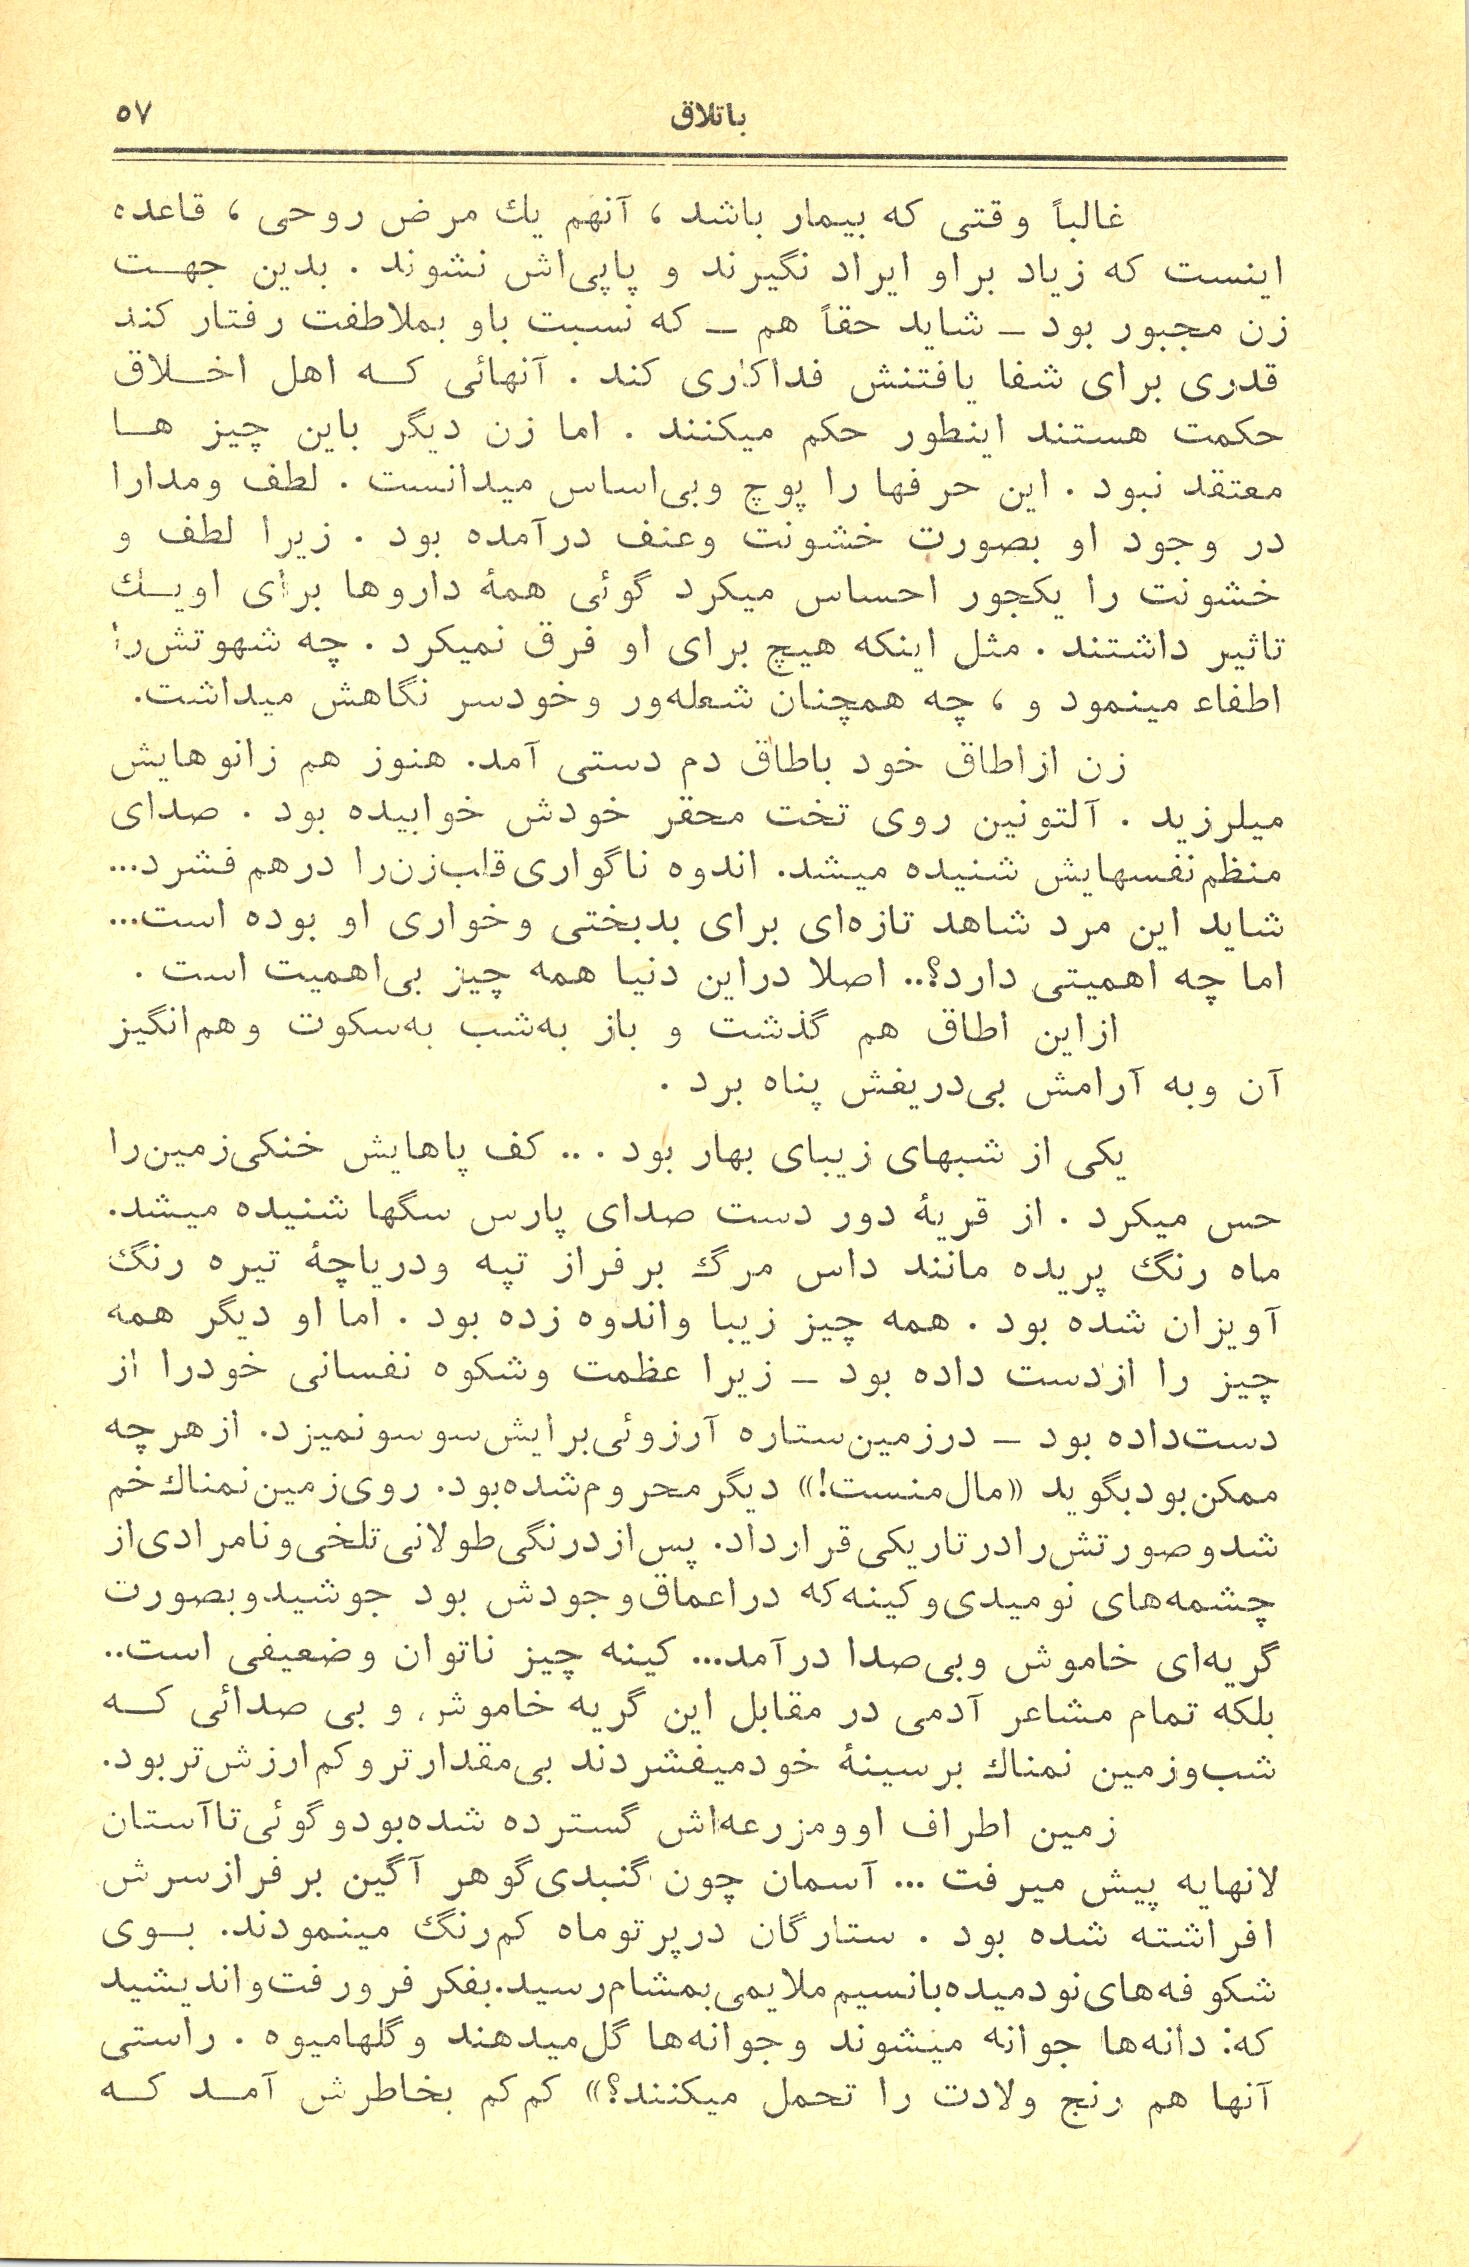 باتلاق ۵۷
غالباً وقتی که بیمار باشد ، آنهم یك مرض روحی ، قاعده
اینست که زیاد براو ایراد نگیرند و پاپی‌اش نشوند . بدین جهت
زن مجبور بود ـ شاید حقاً هم ـ که نسبت باو بملاطفت رفتار کند
قدری برای شفا یافتنش فداکاری کند . آنهائی که اهل اخلاق
حکمت هستند اینطور حکم میکنند . اما زن دیگر باین چیز ها
معتقد نبود . این حرفها را پوچ وبی‌اساس میدانست . لطف ومدارا
در وجود او بصورت خشونت وعنف درآمده بود . زیرا لطف و
خشونت را یکجور احساس میکرد گوئی همهٔ داروها برای اویك
تاثیر داشتند . مثل اینکه هیچ برای او فرق نمیکرد . چه شهوتش‌را
اطفاء مینمود و ، چه همچنان شعله‌ور وخودسر نگاهش میداشت.
زن ازاطاق خود باطاق دم دستی آمد. هنوز هم زانوهایش
میلرزید . آلتونین روی تخت محقر خودش خوابیده بود . صدای
منظم‌نفسهایش شنیده میشد. اندوه ناگواری‌قلب‌زن‌را درهم‌فشرد...
شاید این مرد شاهد تازه‌ای برای بدبختی وخواری او بوده است...
اما چه اهمیتی دارد؟.. اصلا دراین دنیا همه چیز بی‌اهمیت است .
ازاین اطاق هم گذشت و باز به‌شب به‌سکوت وهم‌انگیز
آن وبه آرامش بی‌دریغش پناه برد .
یکی از شبهای زیبای بهار بود . .. کف پاهایش خنکی‌زمین‌را
حس میکرد . از قریهٔ دور دست صدای پارس سگها شنیده میشد.
ماه رنگ پریده مانند داس مرگ برفراز تپه ودریاچهٔ تیره رنگ
آویزان شده بود . همه چیز زیبا واندوه زده بود . اما او دیگر همه
چیز را ازدست داده بود ـ زیرا عظمت وشکوه نفسانی خودرا از
دست‌داده بود ـ درزمین‌ستاره آرزوئی‌برایش‌سوسونمیزد. ازهرچه
ممکن‌بودبگوید «مال‌منست!» دیگرمحروم‌شده‌بود. روی‌زمین‌نمناك‌خم
شدوصورتش‌رادرتاریکی‌قرارداد. پس‌ازدرنگی‌طولانی‌تلخی‌ونامرادی‌از
چشمه‌های نومیدی‌وکینه‌که دراعماق‌وجودش بود جوشیدوبصورت
گریه‌ای خاموش وبی‌صدا درآمد... کینه چیز ناتوان وضعیفی است..
بلکه تمام مشاعر آدمی در مقابل این گریه خاموش و بی صدائی که
شب‌وزمین نمناك برسینهٔ خودمیفشردند بی‌مقدارتر وکم‌ارزش‌تربود.
زمین اطراف اوومزرعه‌اش گسترده شده‌بودوگوئی‌تاآستان
لانهایه پیش میرفت ... آسمان چون گنبدی‌گوهر آگین برفرازسرش
افراشته شده بود . ستارگان درپرتوماه کم‌رنگ مینمودند. بوی
شکوفه‌های‌نودمیده‌بانسیم‌ملایمی‌بمشام‌رسید.بفکر فرورفت‌واندیشید
که: دانه‌ها جوانه میشوند وجوانه‌ها گل‌میدهند وگلهامیوه . راستی
آنها هم رنج ولادت را تحمل میکنند؟» کم‌کم بخاطرش آمد که